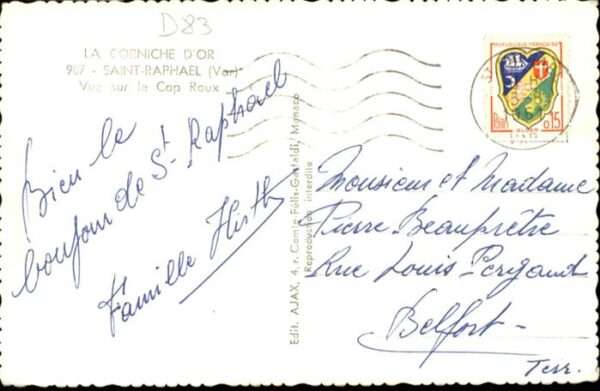 D83
LA CORNICHE D'OR
907 - SAINT-RAPHAEL (Var)
Vue sur le Cap Roux
Bien le
bonjour de St Raphaël
Famille Hirth
Edit. AJAX, 4, r. Comte-Félix-Gastaldi, Monaco
Reproduction interdite
REPUBLIQUE FRANÇAISE
0,15
Monsieur et Madame
Pierre Beauprêtre
Rue Louis Pergaud
Belfort -
Terr.